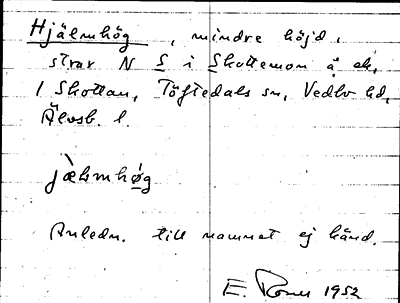 Hjälmhög, mindre höjd,
strax N S i Skottemon å ek,
1 Skottan, Töftedals sn, Vedbo hd,
Älvsb. l.
jælmhög
Anledn. till namnet ej känd.
E. 1952